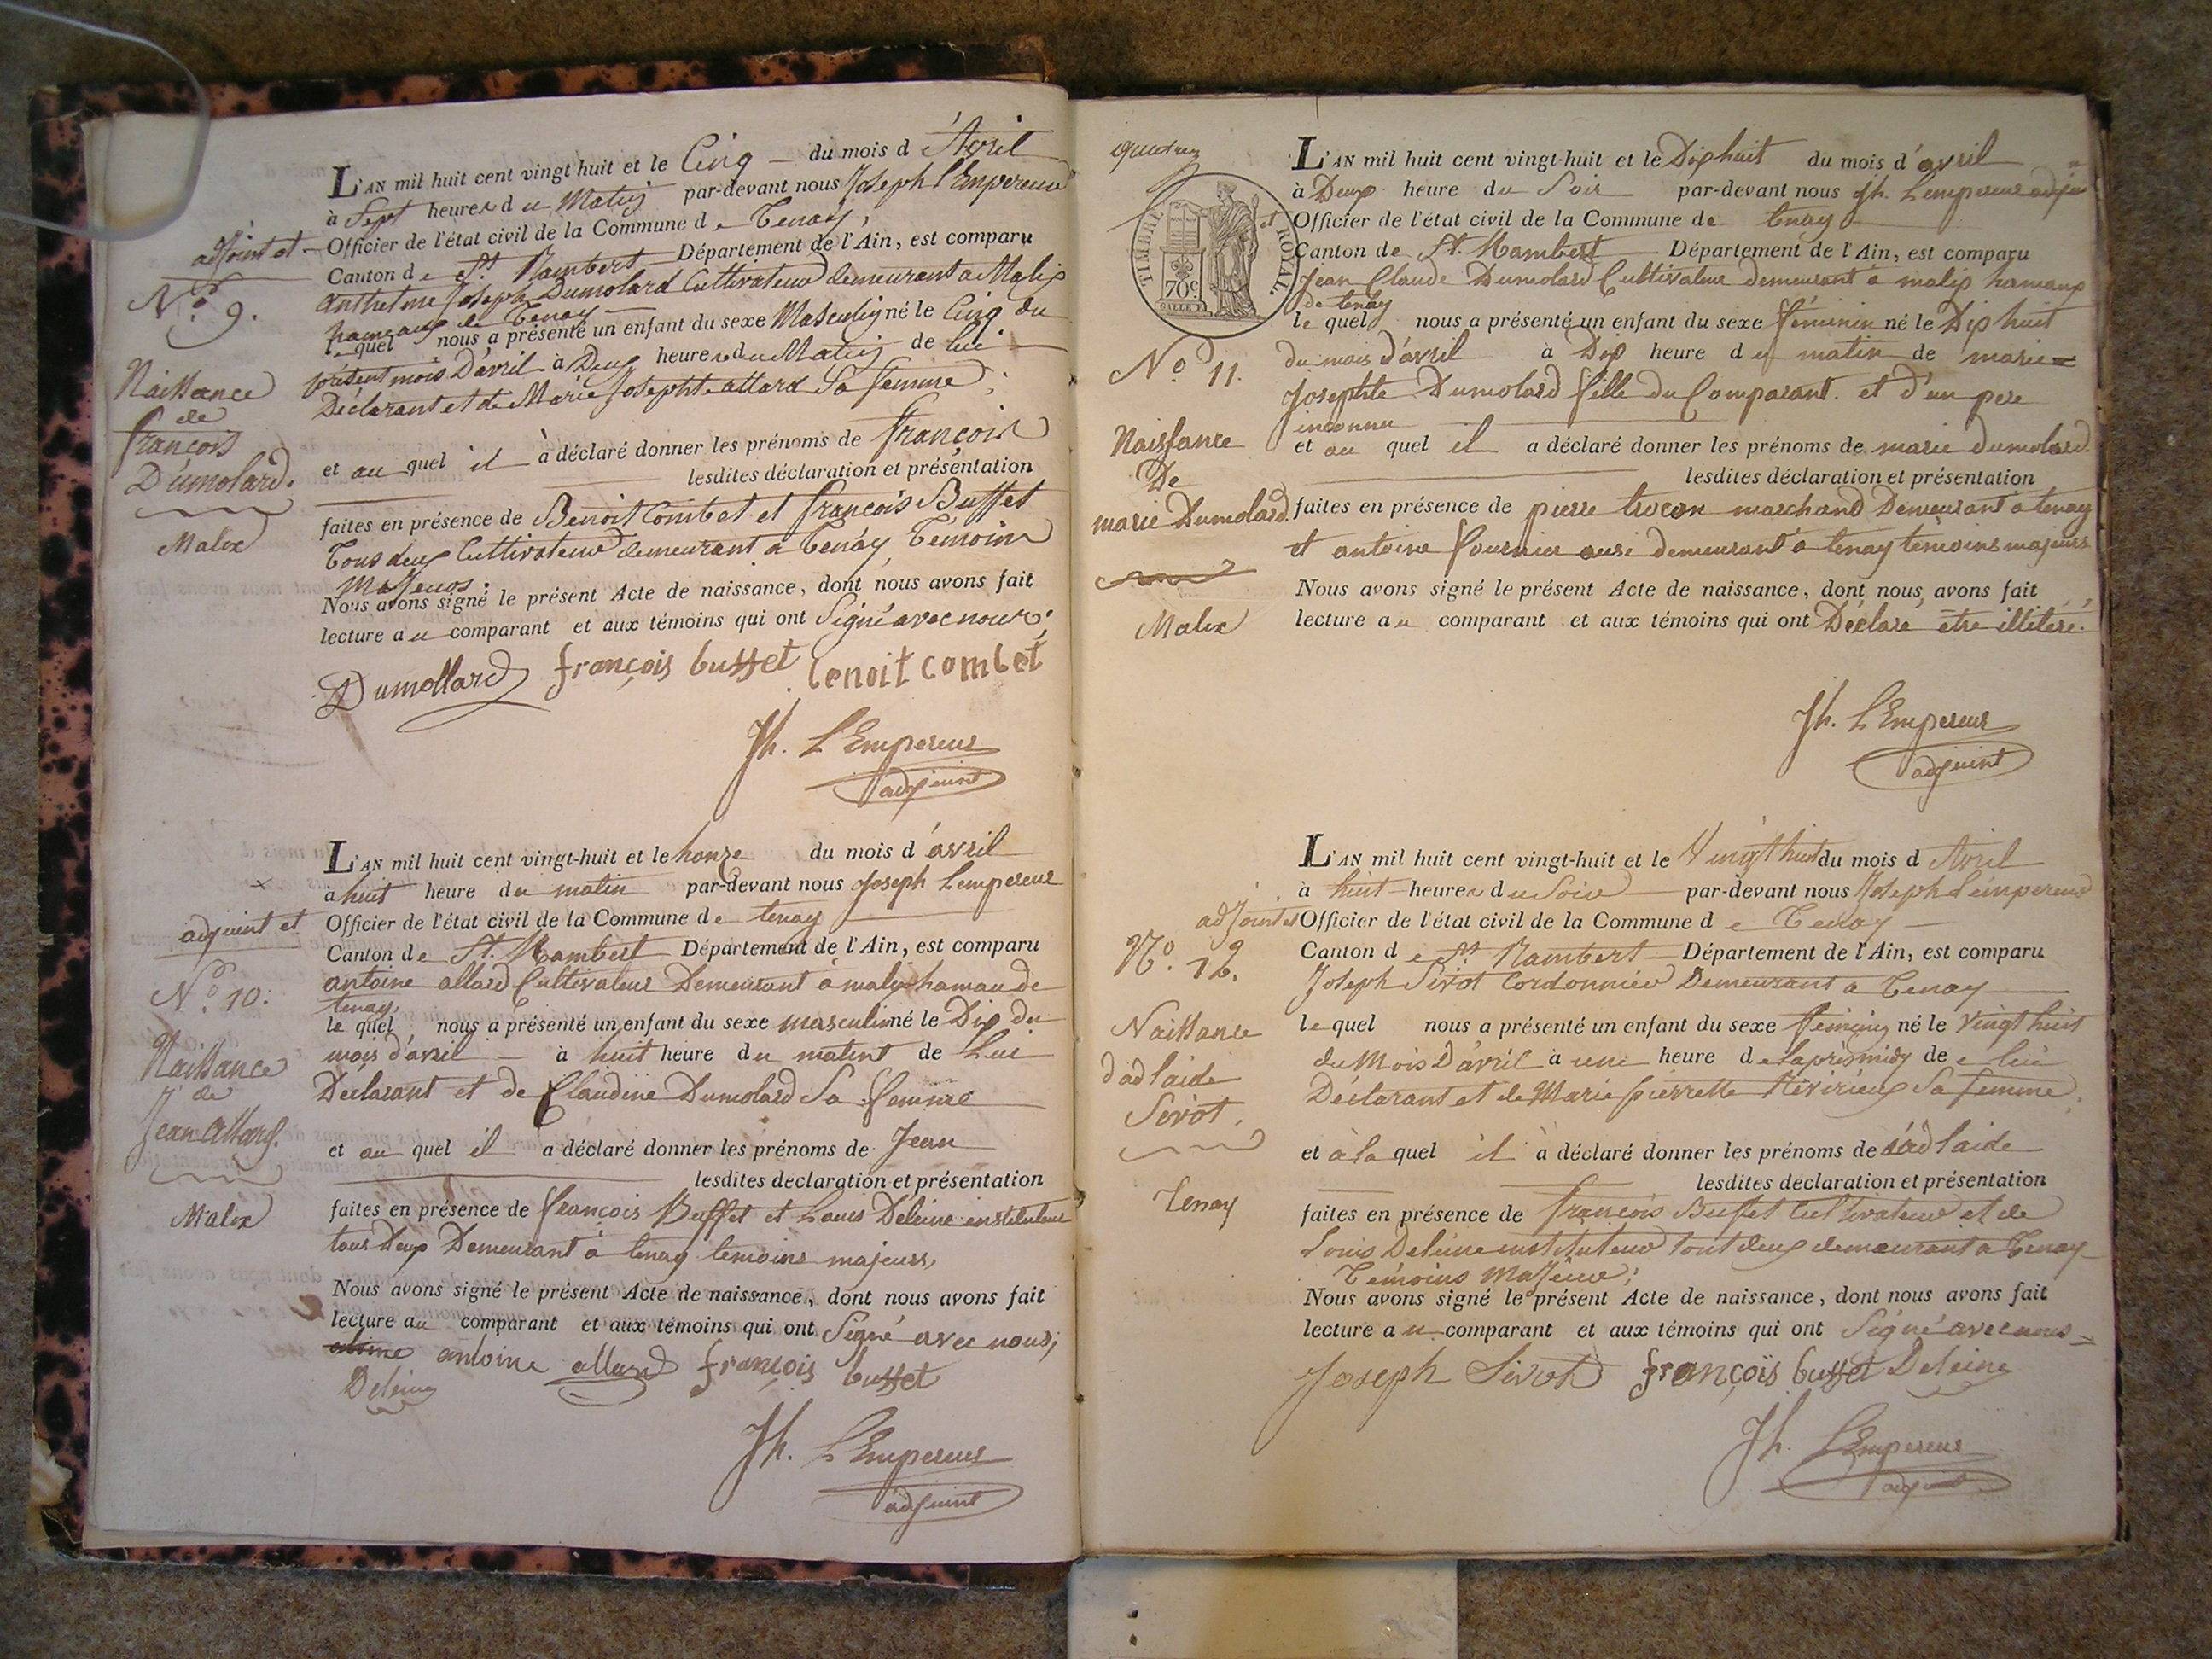 L'AN mil huit cent vingt huit et le Cinq du mois d'Avril
à Sept heures du Matin par-devant nous Joseph l'Empereur
adjoint et Officier de l'état civil de la Commune de Tenay,
Canton de St Rambert Département de l'Ain, est comparu
anthelme Joseph Dumolard Cultivateur demeurant a Malix
hameaux de Tenay
le quel nous a présenté un enfant du sexe Masculin né le Cinq du
présent mois D'avril à Deux heures du Matin de lui
Déclarant et de Marie Josephte allard Sa femme;
et au quel il à déclaré donner les prénoms de françois
lesdites déclaration et présentation
faites en présence de Benoit Combet et françois Buffet
Tous deux Cultivateur demeurant a Tenay Témoins
Majeurs.
Nous avons signé le présent Acte de naissance, dont nous avons fait
lecture au comparant et aux témoins qui ont Signé avec nous.
Dumollard françois buffet benoit combet
Jh. L'Empereur
adjoint
No. 9.
Naissance
de
françois
Dumolard.
Malix
L'AN mil huit cent vingt-huit et le honze du mois d'avril
a huit heure du matin par-devant nous joseph lempereur
adjoint et Officier de l'état civil de la Commune de tenay
Canton de St. Rambert Département de l'Ain, est comparu
antoine allard Cultivateur Demeurant à malix hamau de
tenay.
le quel nous a présenté un enfant du sexe masculin né le Dix du
mois d'avril à huit heure du matint de Lui
Déclarant et de Claudine Dumolard Sa femme
et au quel il a déclaré donner les prénoms de Jean
lesdites declaration et présentation
faites en présence de françois Buffet et Louis Deleine instituteur
tous Deux Demeurant à tenay temoins majeurs,
Nous avons signé le présent Acte de naissance, dont nous avons fait
lecture au comparant et aux témoins qui ont Signé avec nous;
antoine allard françois buffet
Deleine
Jh. L'Empereur
adjoint
No. 10.
Naissance
de
Jean Allard.
Malix
L'AN mil huit cent vingt-huit et le Dix huit du mois d'avril
à Deux heure du Soir par-devant nous jh. Lempereur adjoin
et Officier de l'état civil de la Commune de tenay
Canton de St. Rambert Département de l'Ain, est comparu
Jean Claude Dumolard Cultivateur demeurant a malix hamaux
de tenay
le quel nous a présenté un enfant du sexe féminin né le Dix huit
du mois d'avril à Dix heure du matin de marie=
Josephte Dumolard fille du Comparant. et d'un pere
inconnu
et au quel il a déclaré donner les prénoms de marie dumolard.
lesdites déclaration et présentation
faites en présence de pierre trocon marchand Demeurant a tenay
et antoine fournier ausi demeurant à tenay témoins majeurs
Nous avons signé le présent Acte de naissance, dont nous avons fait
lecture au comparant et aux témoins qui ont Déclaré être illiteré.
Jh. L'Empereur
adjoint
TIMBRE ROYAL.
70c
No. 11.
Naissance
De
marie Dumolard.
Malix
L'AN mil huit cent vingt-huit et le Vingt huit du mois d Avril
à huit heures du Soir par-devant nous Joseph L'empereur
adjoint et Officier de l'état civil de la Commune de Tenay
Canton de St Rambert Département de l'Ain, est comparu
Joseph Sivot Cordonnier Demeurant a Tenay
le quel nous a présenté un enfant du sexe féminin né le Vingt huit
du Mois D'avril à une heure de laprès midy de lui
Déclarant et de Marie pierrette Sa femme.
et à la quel il à déclaré donner les prénoms de d'adlaide
lesdites declaration et présentation
faites en présence de françois Buffet Cultivateur et de
Louis Deleine instituteur tout deux demeurant à Tenay
Témoins Majeur;
Nous avons signé le présent Acte de naissance, dont nous avons fait
lecture au comparant et aux témoins qui ont Signé avec nous =
Joseph Sivot françois buffet Deleine
Jh. L'Empereur
adjoint
No. 12.
Naissance
d'adlaide
Sivot.
Tenay